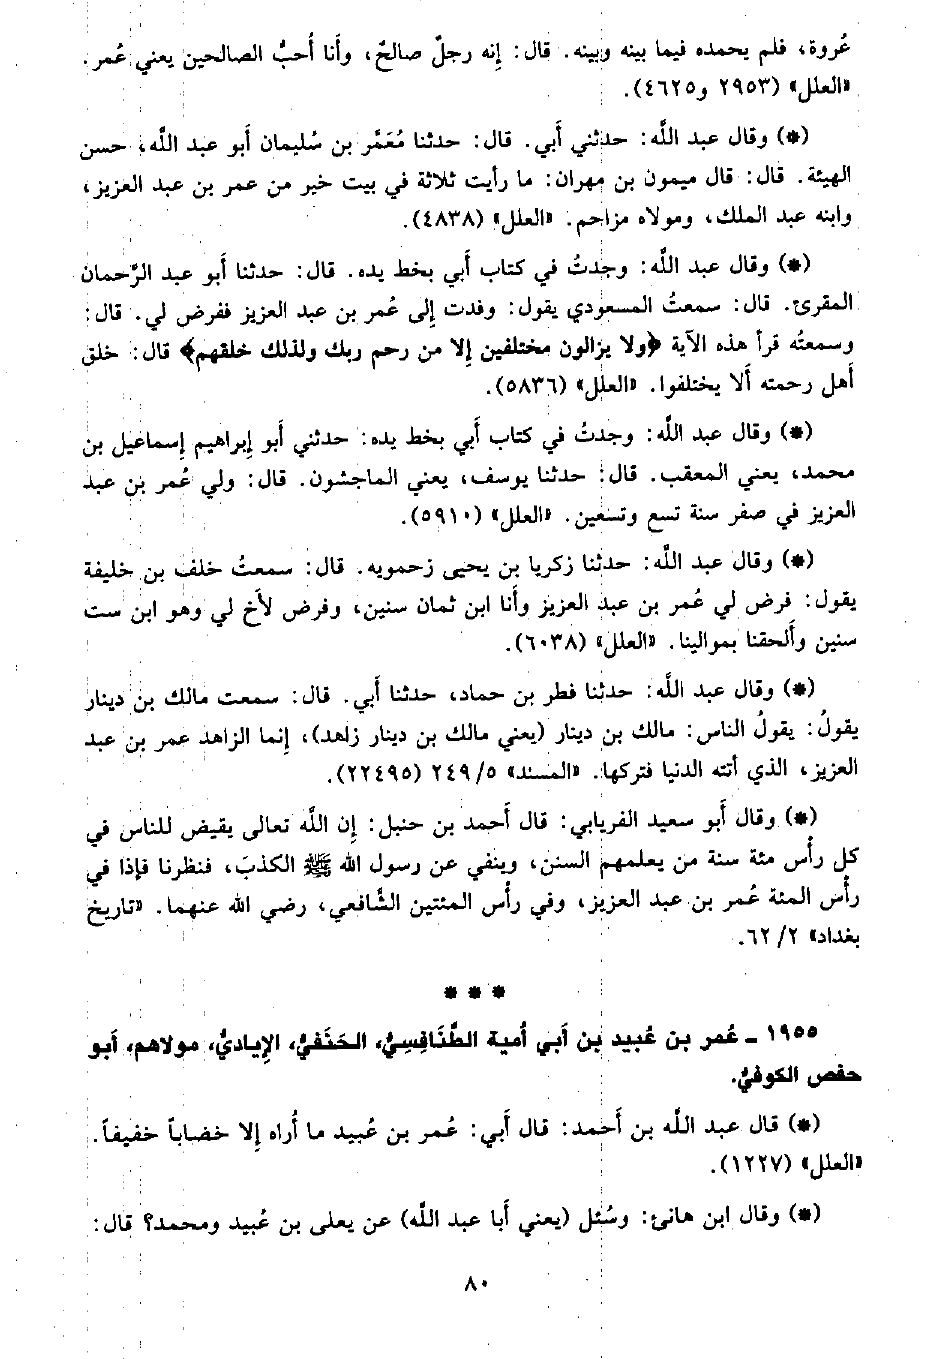 عُروة، فلم يحمده فيما بينه وبينه. قال: إنه رجلٌ صالحٌ، وأنا أُحبُّ الصالحين يعني عُمر.
«العلل» (٢٩٥٣ و٤٦٢٥).
(*) وقال عبد اللَّه: حدثني أبي. قال: حدثنا مُعَمَّر بن سُليمان أبو عبد اللَّه، حسن
الهيئة. قال: قال ميمون بن مهران: ما رأيت ثلاثة في بيت خير من عمر بن عبد العزيز،
وابنه عبد الملك، ومولاه مزاحم. «العلل» (٤٨٣٨).
(*) وقال عبد اللَّه: وجدتُ في كتاب أبي بخط يده. قال: حدثنا أبو عبد الرَّحمان
المقرئ. قال: سمعتُ المسعودي يقول: وفدت إلى عُمر بن عبد العزيز ففرض لي. قال:
وسمعتُه قرأ هذه الآية ﴿ولا يزالون مختلفين إلا من رحم ربك ولذلك خلقهم﴾ قال: خلق
أهل رحمته ألا يختلفوا. «العلل» (٥٨٣٦).
(*) وقال عبد اللَّه: وجدتُ في كتاب أبي بخط يده: حدثني أبو إبراهيم إسماعيل بن
محمد، يعني المعقب. قال: حدثنا يوسف، يعني الماجشون. قال: ولي عُمر بن عبد
العزيز في صفر سنة تسع وتسعين. «العلل» (٥٩١٠).
(*) وقال عبد اللَّه: حدثنا زكريا بن يحيى زحمويه. قال: سمعتُ خلف بن خليفة
يقول: فرض لي عُمر بن عبد العزيز وأنا ابن ثمان سنين، وفرض لأخ لي وهو ابن ست
سنين وألحقنا بموالينا. «العلل» (٦٠٣٨).
(*) وقال عبد اللَّه: حدثنا فطر بن حماد، حدثنا أبي. قال: سمعت مالك بن دينار
يقولُ: يقولُ الناس: مالك بن دينار (يعني مالك بن دينار زاهد)، إنما الزاهد عمر بن عبد
العزيز، الذي أتته الدنيا فتركها. «المسند» ٥/ ٢٤٩ (٢٢٤٩٥).
(*) وقال أبو سعيد الفريابي: قال أحمد بن حنبل: إن اللَّه تعالى يقيض للناس في
كل رأس مئة سنة من يعلمهم السنن، وينفي عن رسول الله ﷺ الكذبَ، فنظرنا فإذا في
رأس المئة عُمر بن عبد العزيز، وفي رأس المئتين الشَّافعي، رضي الله عنهما. «تاريخ
بغداد» ٢/ ٦٢.
* * *
١٩٥٥ - عُمر بن عُبيد بن أبي أُمية الطَّنَافِسِيُّ، الحَنَفيُّ، الإياديُّ، مولاهم، أبو
حفص الكوفيُّ.
(*) قال عبد اللَّه بن أحمد: قال أبي: عُمر بن عُبيد ما أُراه إلا خضاباً خفيفاً.
«العلل» (١٢٢٧).
(*) وقال ابن هانئ: وسُئل (يعني أبا عبد اللَّه) عن يعلى بن عُبيد ومحمد؟ قال:
٨٠